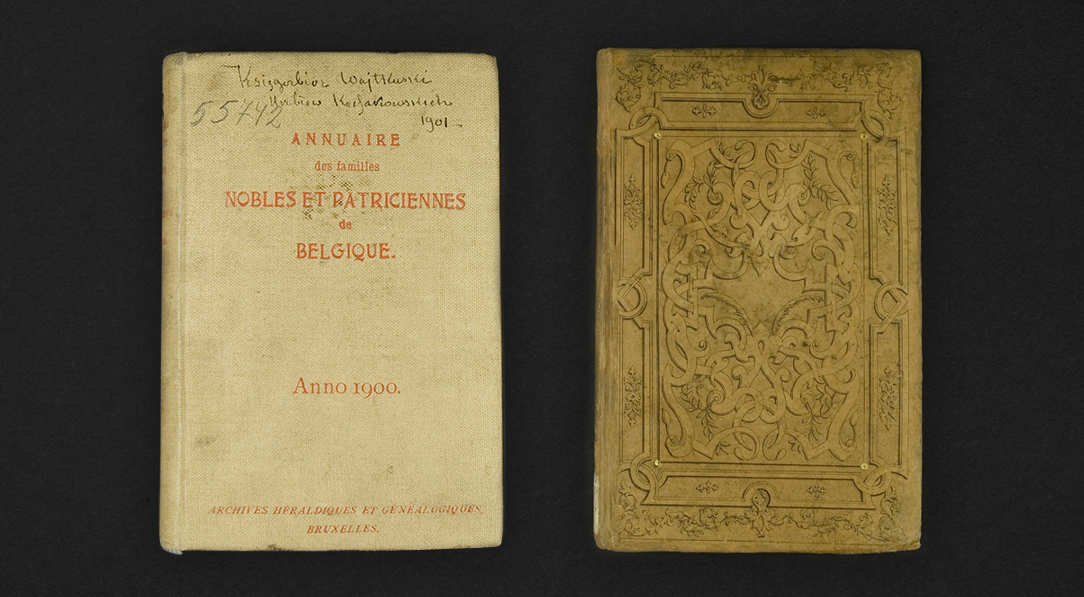 Księgozbiór Wojtkuski
55742
1901
ANNUAIRE
des familles
NOBLES ET PATRICIENNES
de
BELGIQUE.
Anno 1900.
ARCHIVES HÉRALDIQUES ET GÉNÉALOGIQUES
BRUXELLES.